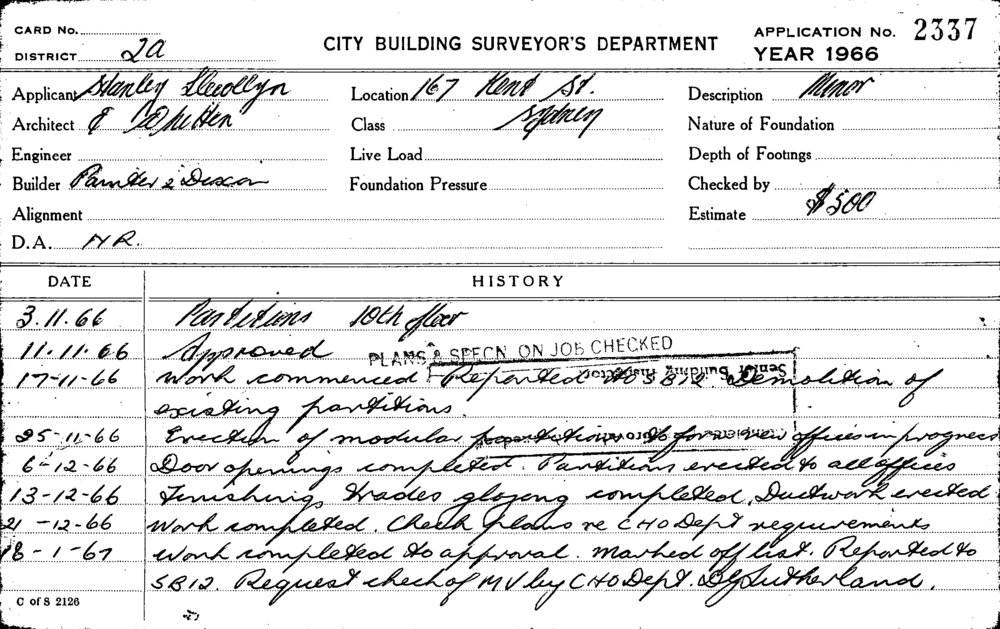 CARD No.
DISTRICT 2A
CITY BUILDING SURVEYOR'S DEPARTMENT
APPLICATION No. 2337
YEAR 1966
Applicant Stanley Llewellyn
Location 167 Kent St.
Description Minor
Architect E
Class Sydney
Nature of Foundation
Engineer
Live Load
Depth of Footings
Builder Painter & Dixon
Foundation Pressure
Checked by
Alignment
Estimate $500
D.A. NR.
DATE HISTORY
3.11.66 Partitions 10th floor
11.11.66 Approved
PLANS & SPECN ON JOB CHECKED
Senior Building Inspector
17-11-66 Work commenced Reported to SB12 Demolition of
existing partitions.
25-11-66 Erection of modular partitions to form new offices in progress
6-12-66 Door openings completed. Partitions erected to all offices
13-12-66 Finishing trades glazing completed. Ductwork erected
21-12-66 Work completed. Check plans re CHO Dept requirements
18-1-67 Work completed to approval. Marked off list. Reported to
SB12. Request check of MV by CHO Dept. DG Sutherland.
C of S 2126